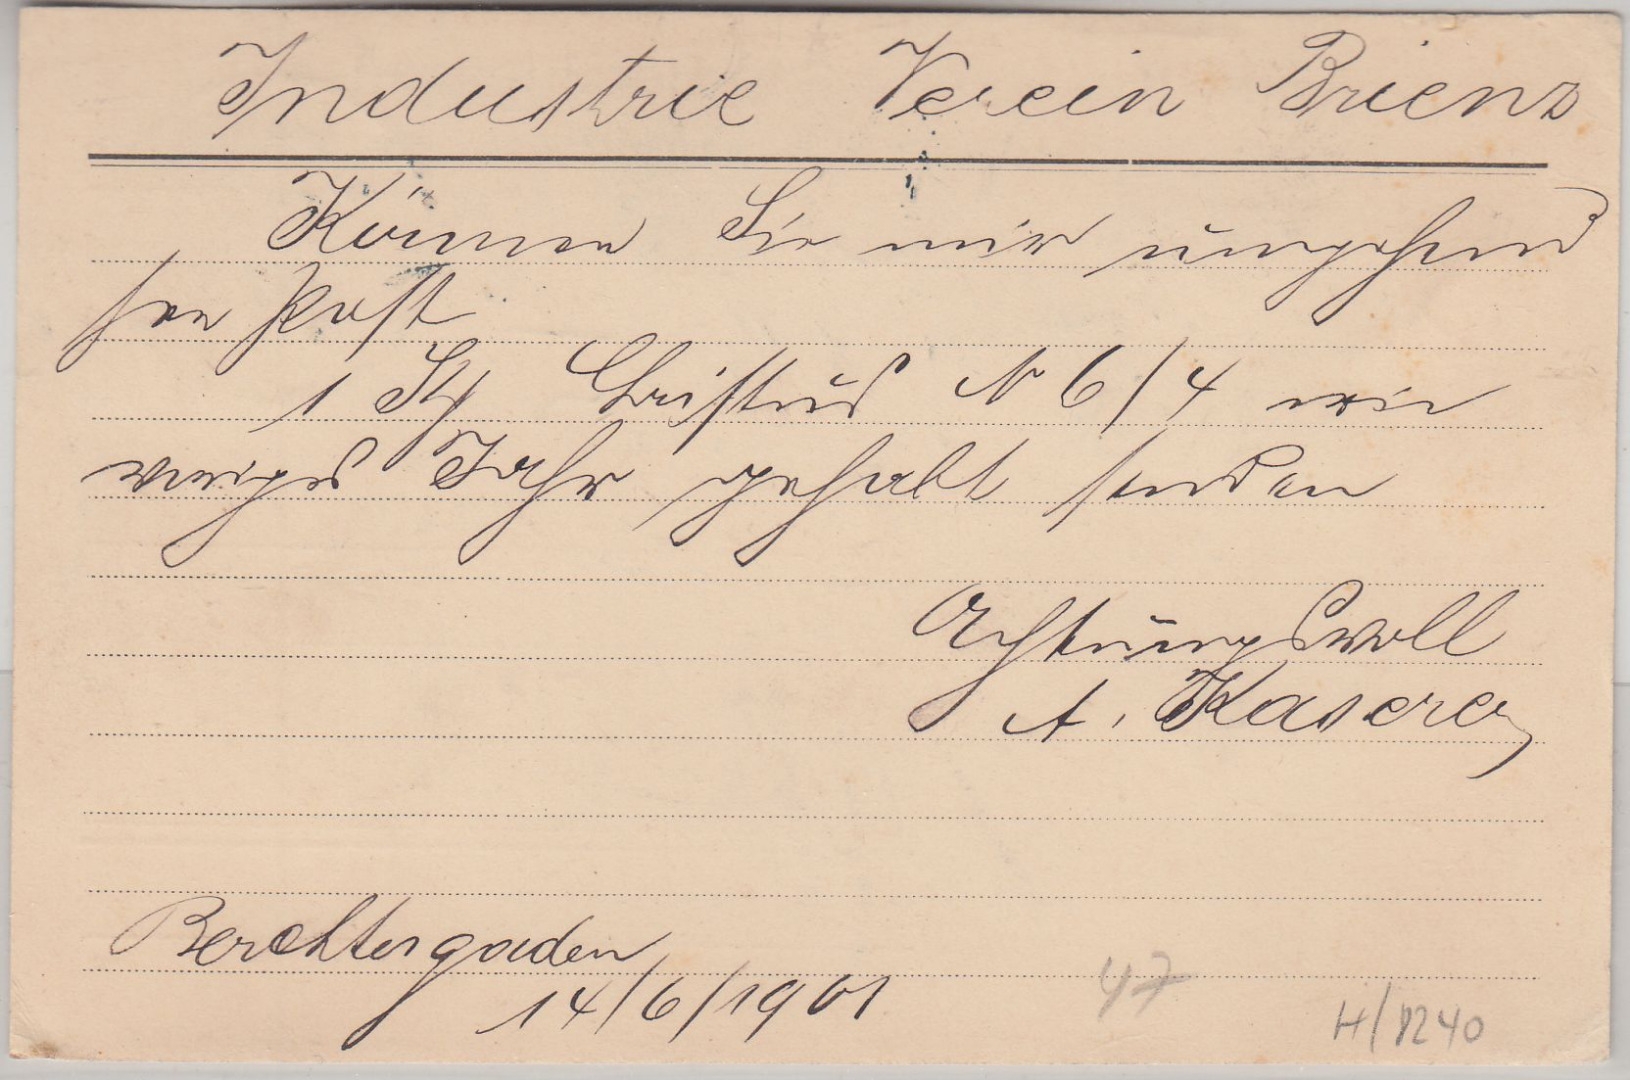 Industrie Verein Brienz
Können Sie mir umgehend
per Post
1 St Christus N 6/4 wie
voriges Jahr gehabt senden
Achtungsvoll
A. Kaserer
Berchtesgaden
14/6/1901
47
H/8240